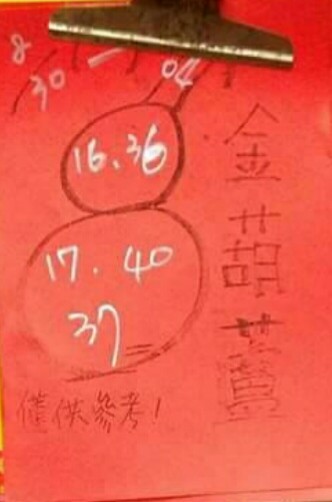 8
30
04
16.36
17.40
37
金葫蘆
僅供參考!